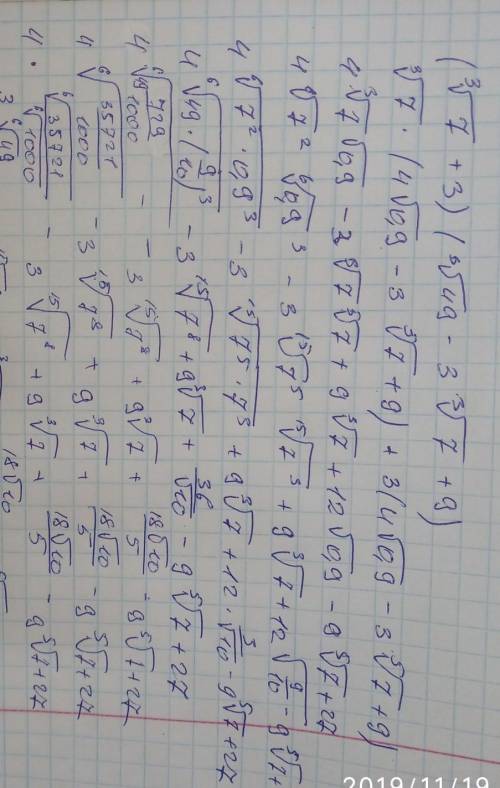 (∛7 + 3)(⁵√49 - 3∛7 + 9)
∛7 · (4√0,9 - 3⁵√7 + 9) + 3(4√0,9 - 3⁵√7 + 9)
4∛7√0,9 - 3⁵√7∛7 + 9∛7 + 12√0,9 - 9⁵√7 + 27
4⁶√7² ⁶√0,9³ - 3¹⁵√7⁵ ¹⁵√7³ + 9∛7 + 12√9/10 - 9⁵√7 +
4⁶√7² · 0,9³ - 3¹⁵√7⁵ · 7³ + 9∛7 + 12 · 3/√10 - 9⁵√7 + 27
4⁶√49 · (9/10)³ - 3¹⁵√7⁸ + 9∛7 + 36/√10 - 9⁵√7 + 27
4⁶√49 729/1000 - 3¹⁵√7⁸ + 9∛7 + 18√10/5 - 9⁵√7 + 27
4⁶√35721/1000 - 3¹⁵√7⁸ + 9∛7 + 18√10/5 - 9⁵√7 + 27
4 · ⁶√35721/⁶√1000 - 3¹⁵√7⁸ + 9∛7 + 18√10/5 - 9⁵√7 + 27
3⁶√49 18√10
2019/11/19